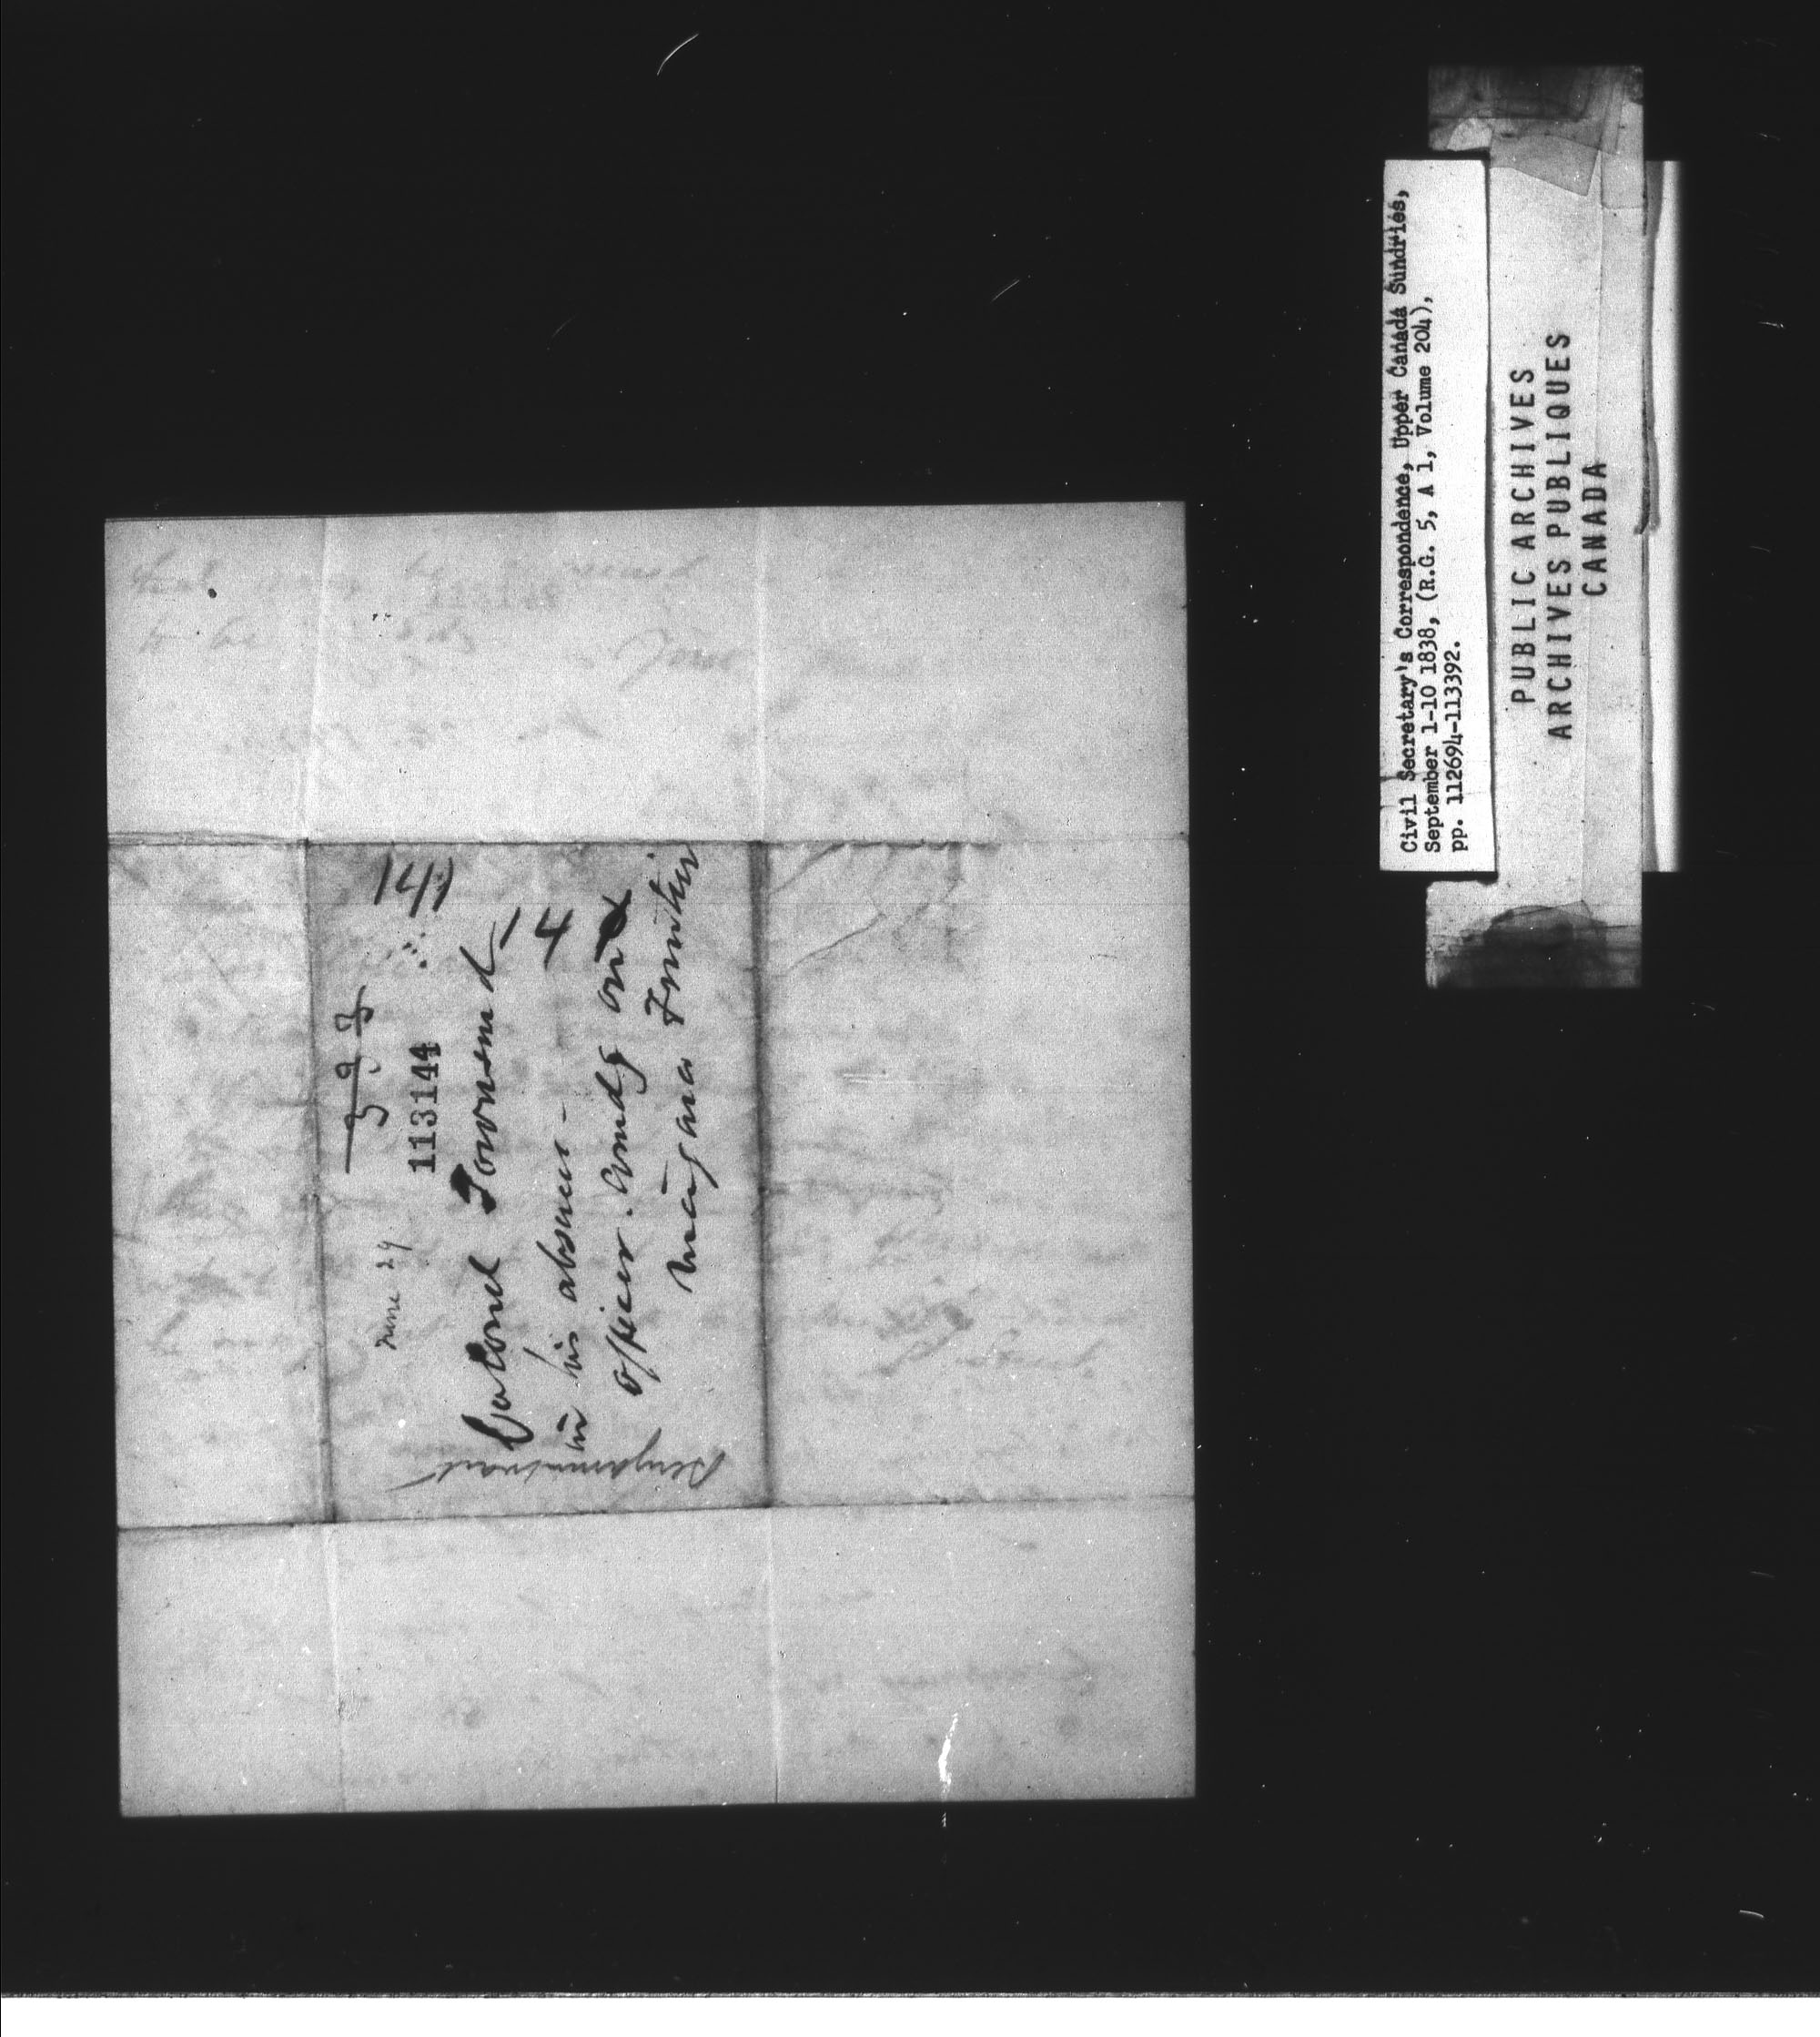 141
393
113144
June 29
Colonel Townsend
14
in his absence -
officer. Comdg on
Niagara Frontier
Benjamin Wait
Civil Secretary's Correspondence, Upper Canada Sundries,
September 1-10 1838, (R.G. 5, A 1, Volume 204),
pp. 112694-113392.
PUBLIC ARCHIVES
ARCHIVES PUBLIQUES
CANADA